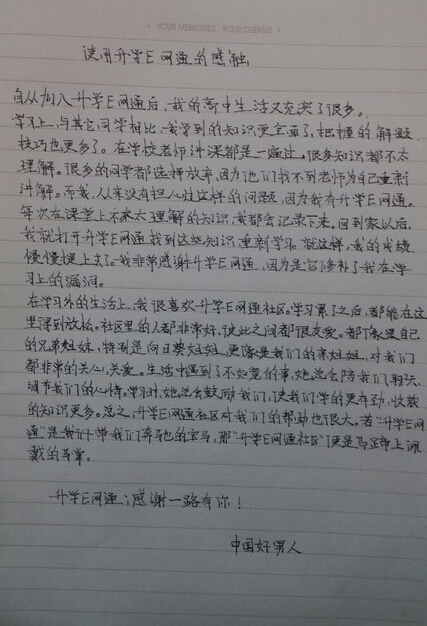 • YOUR MEMORIES · YOUR DREAMS •
使用升学E网通的感触
自从加入升学E网通后，我的高中生活又充实了很多。
学习上，与其它同学相比，我学到的知识更全面了，把握的解题
技巧也更多了。在学校老师讲课都是一遍过，很多知识都不太
理解。很多的同学都选择放弃，因为他们找不到老师为自己重新
讲解。而我，从来没有担心过这样的问题，因为我有升学E网通。
每次在课堂上不太理解的知识，我都会记录下来。回到家以后，
我就打开升学E网通找到这些知识重新学习。就这样，我的成绩
慢慢提上去了。我非常感谢升学E网通，因为是它修补了我在学
习上的漏洞。
在学习外的生活上，我很喜欢升学E网通社区。学习累了之后，都能在这
里得到放松。社区里的人都非常好，彼此之间都很友爱。都像是自己
的兄弟姐妹，特别是向日葵姐姐，更像是我们的亲姐姐，对我们
都非常的关心，关爱。生活中遇到了不如意的事，她总会陪我们聊天，
调节我们的心情。学习时，她总会鼓励我们，使我们学的更有劲，收获
的知识更多。总之，升学E网通社区对我们的帮助也很大。若“升学E网
通”是我们带我们奔驰的宝马，那“升学E网通社区”便是马蹄上佩
戴的马掌。
升学E网通，感谢一路有你！
中国好男人